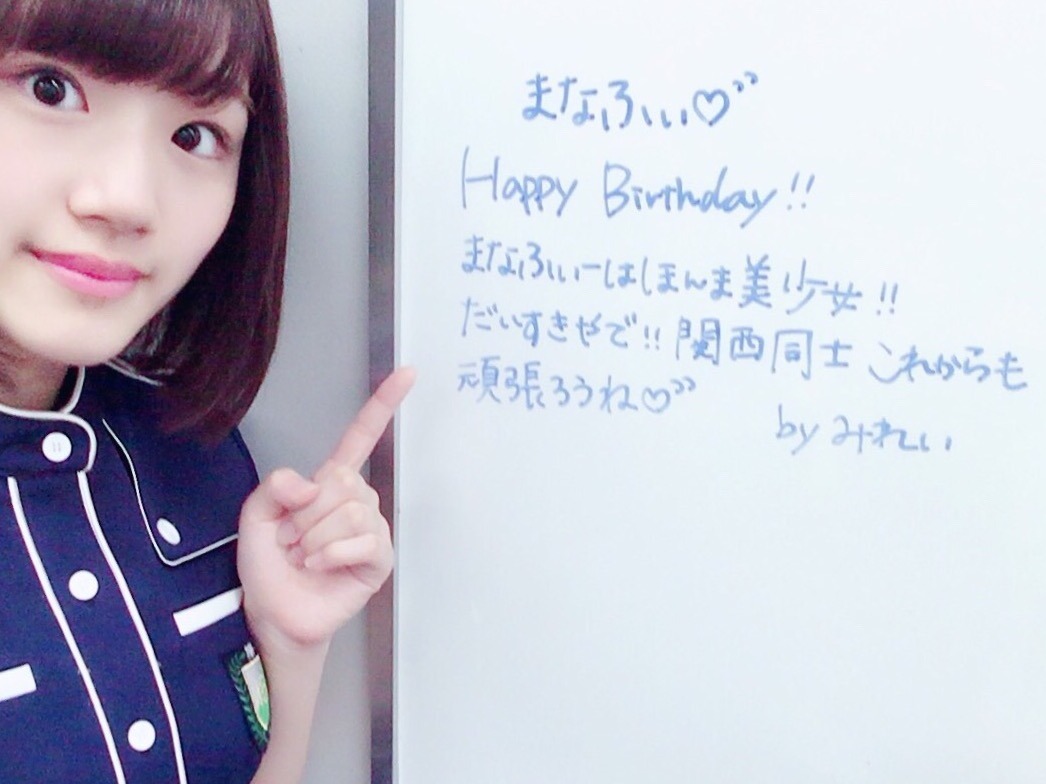 まなふぃ♡”
Happy Birthday!!
まなふぃーはほんま美少女!!
だいすきやで!! 関西同士 これからも
頑張ろうね♡”
by みれい